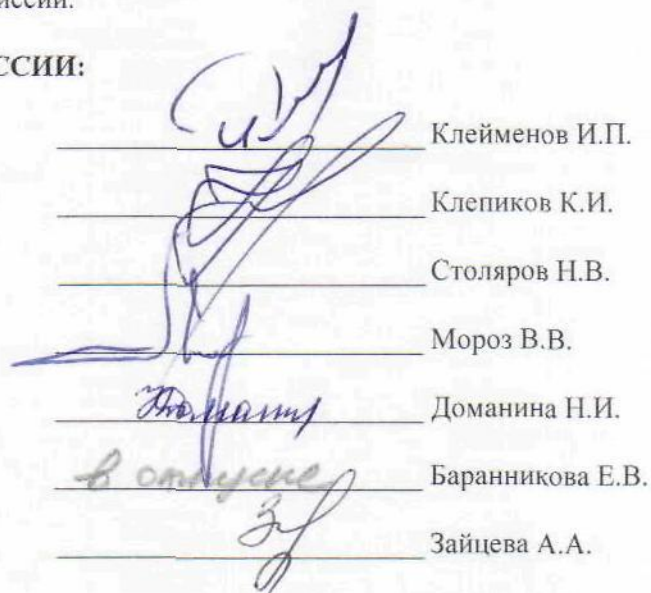 иссии.
ССИИ:
Клейменов И.П.
Клепиков К.И.
Столяров Н.В.
Мороз В.В.
Доманина Н.И.
в отпуске Баранникова Е.В.
Зайцева А.А.